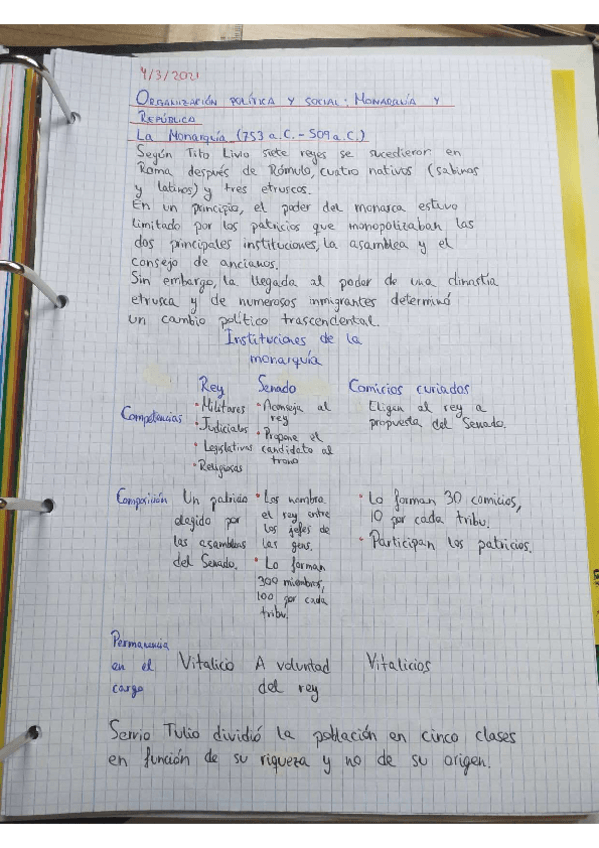 4/3/2021
ORGANIZACIÓN POLÍTICA Y SOCIAL: MONARQUÍA Y
REPÚBLICA
La Monarquía (753 a.C. - 509 a.C.)
Según Tito Livio siete reyes se sucedieron en
Roma después de Rómulo, cuatro nativos (sabinos
y latinos) y tres etruscos.
En un principio, el poder del monarca estuvo
limitado por los patricios que monopolizaban las
dos principales instituciones, la asamblea y el
consejo de ancianos.
Sin embargo, la llegada al poder de una dinastía
etrusca y de numerosos inmigrantes determinó
un cambio político trascendental.
Instituciones de la
monarquía
Rey Senado Comicios curiados
Competencias
• Militares
• Judiciales
• Legislativas
• Religiosas
• Aconseja al
rey
• Propone el
candidato al
trono
Eligen al rey a
propuesta del Senado.
Composición
Un patricio
elegido por
las asambleas
del Senado.
• Los nombra
el rey entre
los jefes de
las gens.
• Lo forman
300 miembros,
100 por cada
tribu.
• Lo forman 30 comicios,
10 por cada tribu.
• Participan los patricios.
Permanencia
en el
cargo
Vitalicio
A voluntad
del rey
Vitalicios
Servio Tulio dividió la población en cinco clases
en función de su riqueza y no de su origen.